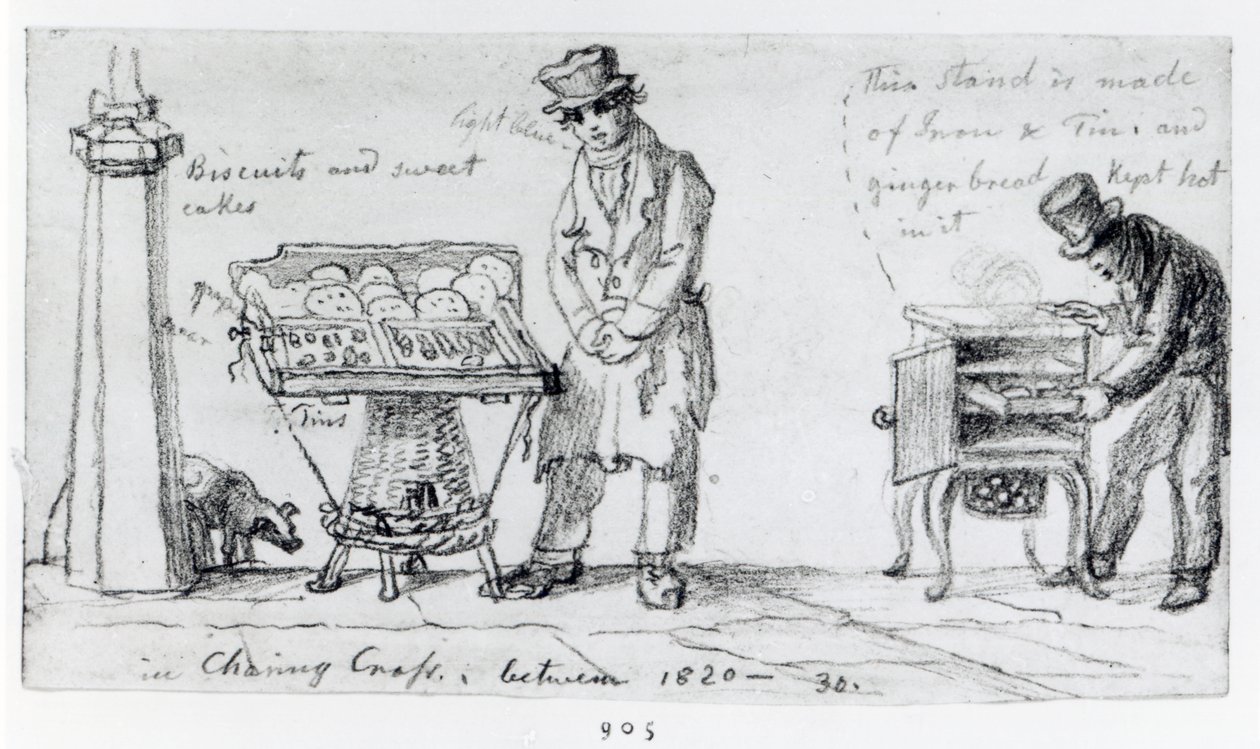 Biscuits and sweet
cakes
light blue
This stand is made
of Iron & Tin. and
ginger bread Kept hot
in it
Tins
in Charing Cross. between 1820 — 30.
905